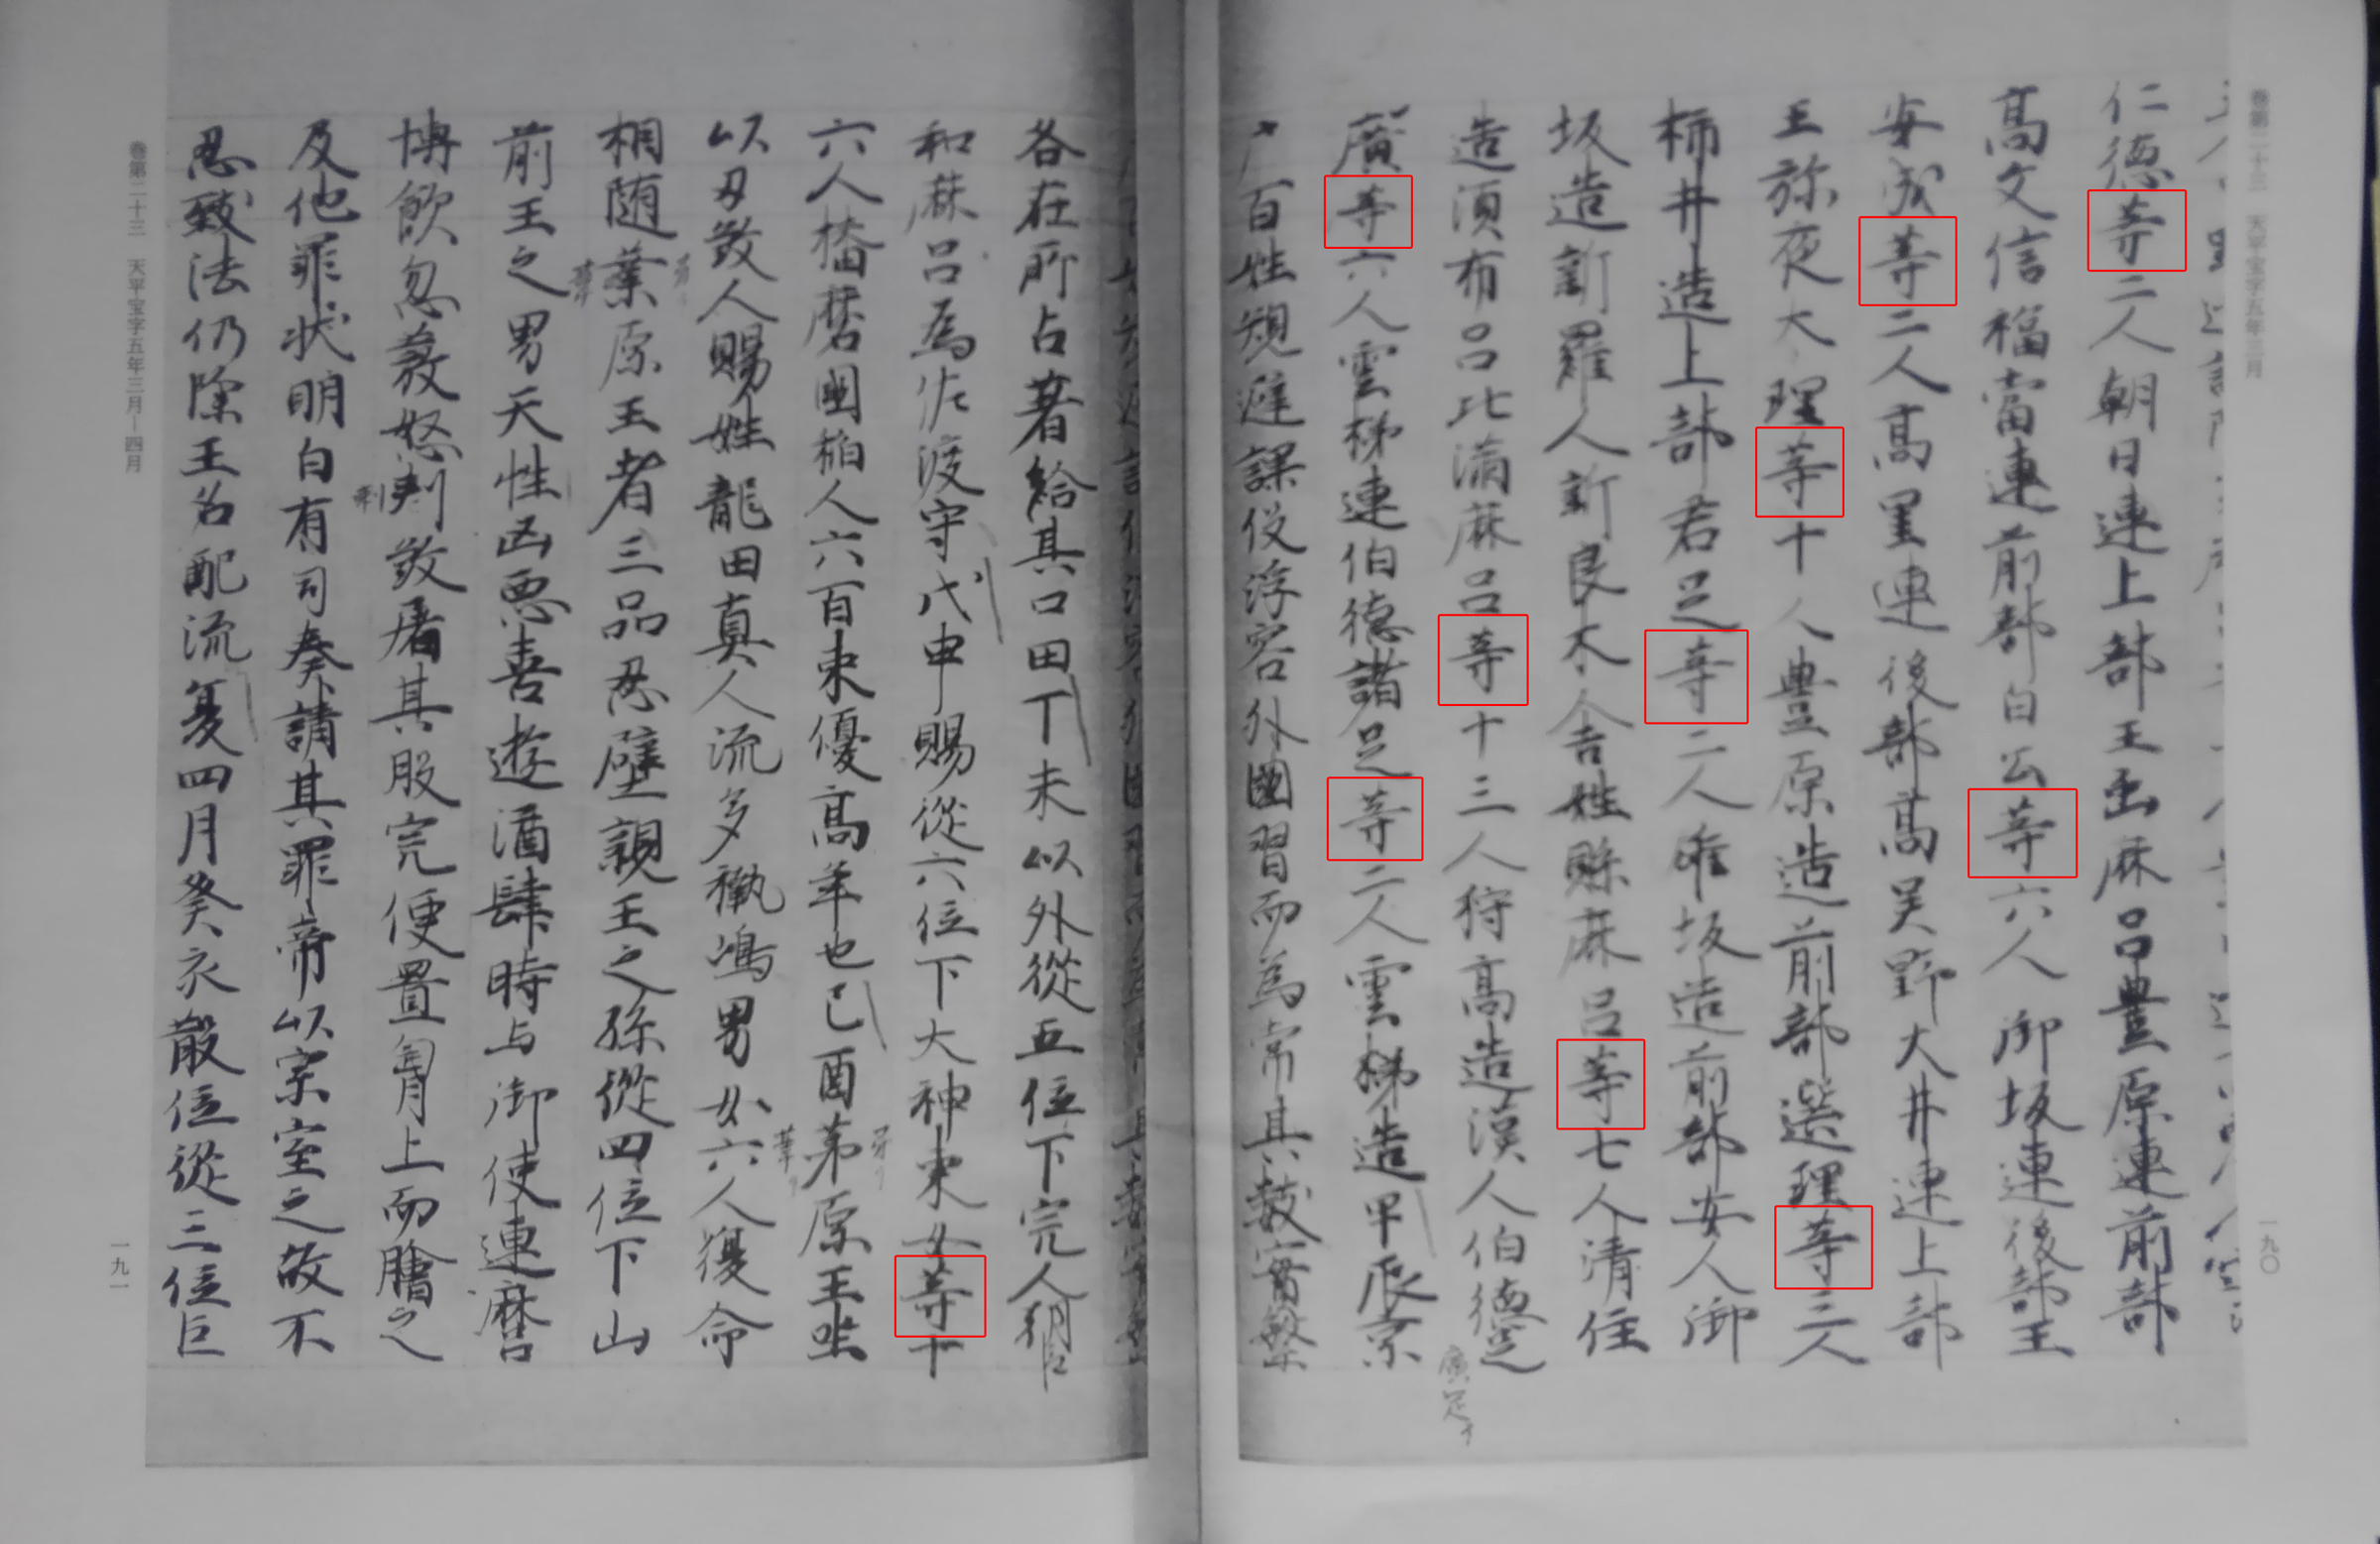 卷第二十三　天平宝字五年三月
仁德等二人朝日連上部王虫麻呂豊原連前部
高文信福當連前部白公等六人御坂連後部王
安成等二人高里連後部高吴野大井連上部
王弥夜大理等十人豊原造前部選理等三人
柿井造上部君足等二人雄坂造前部安人御
坂造新羅人新良木舎姓縣麻呂等七人清住
造須布呂比満麻呂等十三人狩高造漢人伯德足
廣足
廣等六人雲梯連伯德諸足等二人雲梯造甲辰京
百姓規避課伇浮宕外國習而為常其數實繁
一九〇
各在所占著給其口田丁未以外從五位下完人朝臣
和麻呂為佐渡守戊申賜從六位下大神東女等十
六人播磨國稲人六百束優高年也己酉茅原王坐
華
以刃敦人賜姓龍田真人流多褹嶋男女六人復命
相随葉原王者三品忍壁親王之孫從四位下山
華
前王之男天性凶悪喜遊酒肆時与御使連麿
博飲忽發怒刾敦屠其股完便置胷上而膾之
剌
及他罪状明白有司奏請其罪帝以宗室之故不
忍致法仍除王名配流复四月癸亥散位從三位巨
卷第二十三　天平宝字五年三月—四月
一九一